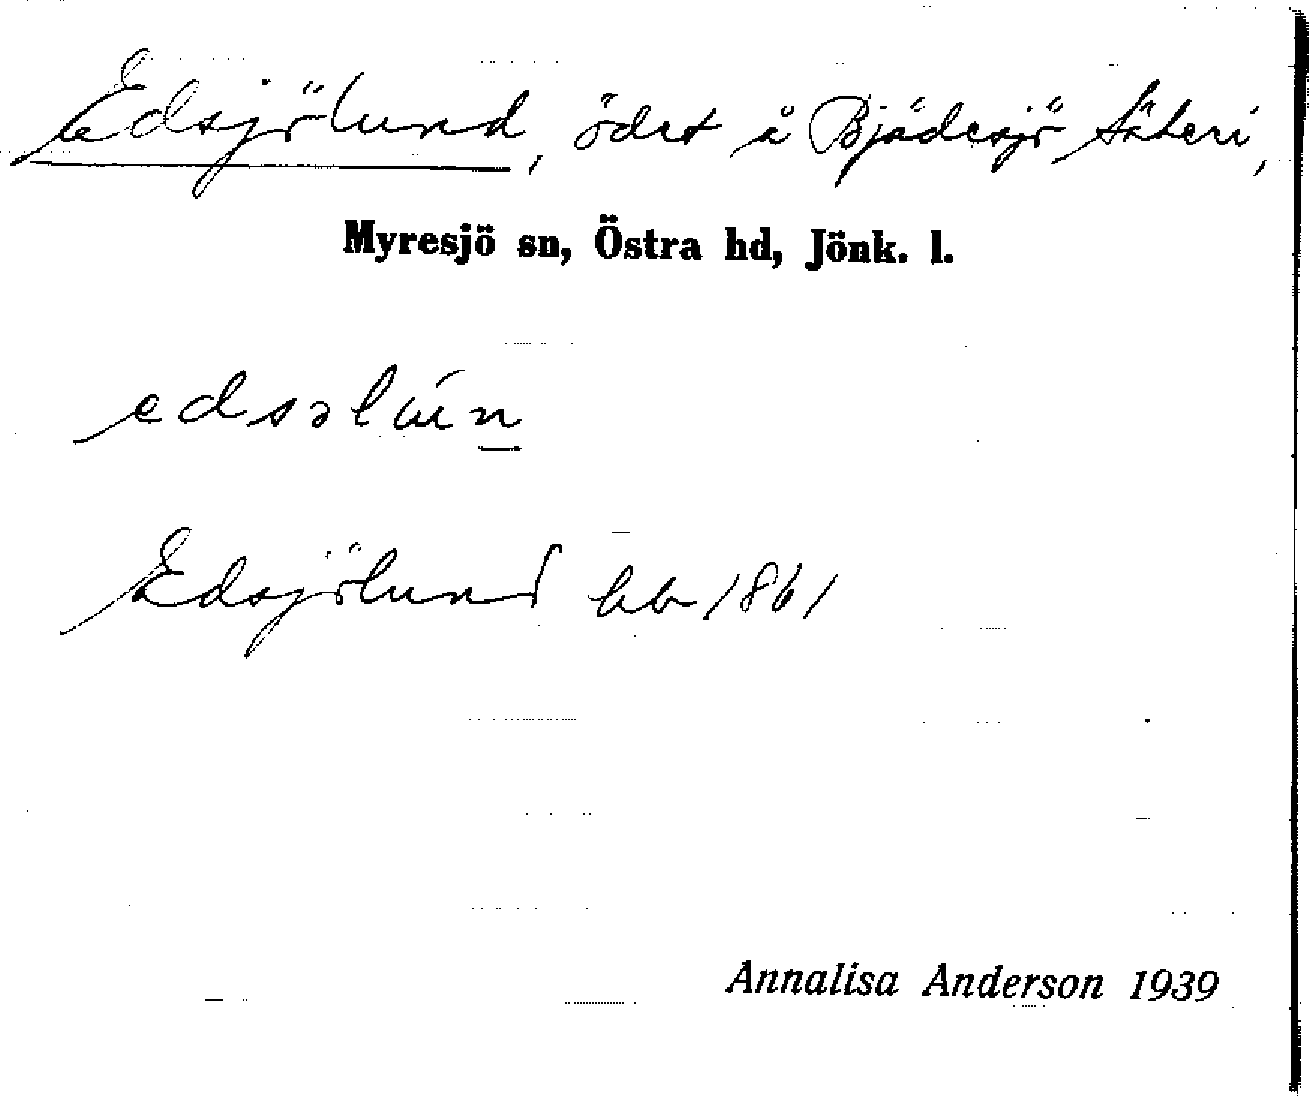 Edsjölund, ödet å Bjädesjö Säteri,
Myresjö sn, Östra hd, Jönk. l.
edsəlún
Edsjölund hb 1861
Annalisa Anderson 1939